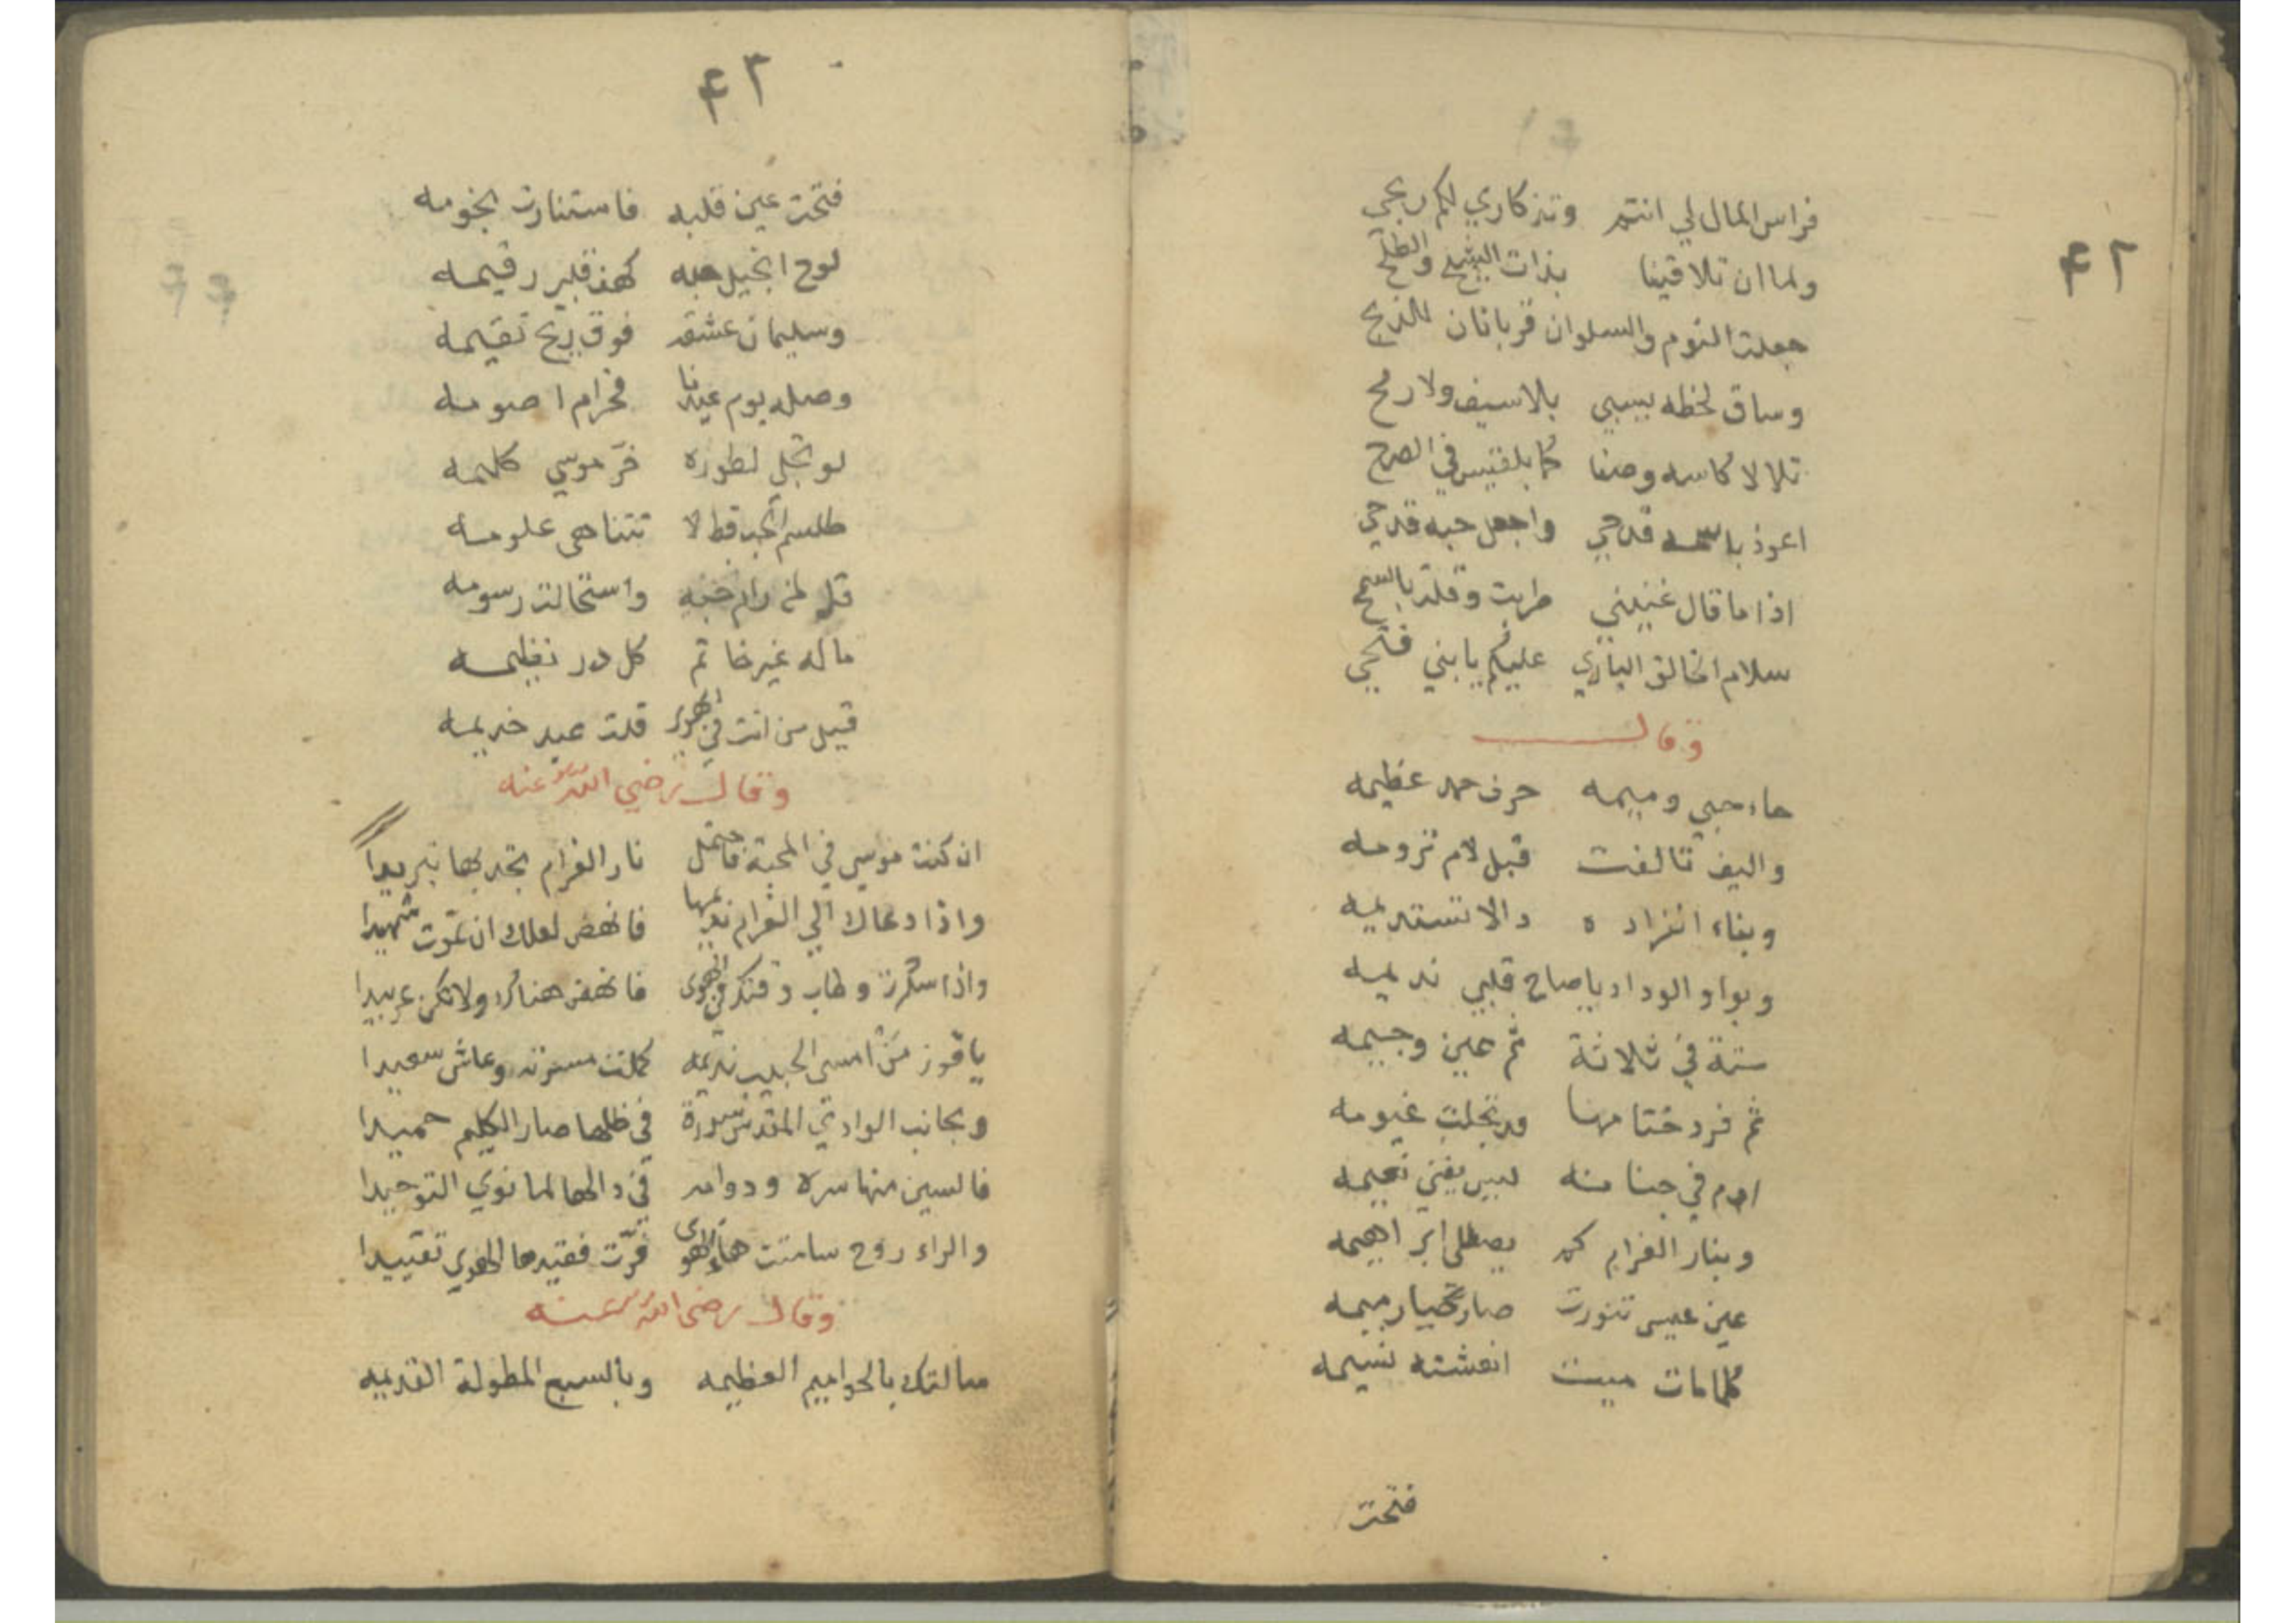 ٤٢
فراس المال لي انتم وتذكاري لكم ربحي
ولما ان تلاقينا بذات الشيح والطلح
جعلت النوم والسلوان قربانان للذبح
وساق لحظه يسبي بلا سيف ولا رمح
تلالا كاسه وصفا كما بلقيس في الصرح
اعوذ باسمه قدحي واجعل حبه قدحي
اذا ما قال غنيني طربت وقلت بالسمح
سلام الخالق الباري عليكم يا بني فتحي
وقال
حاء حبي وميمه حرف حمد عظيمه
واليف تالفت قبل لام ترومه
وبفاء انفراده دالا تستديمه
وبواو الوداد يا صاح قلبي نديمه
ستة في ثلاثة ثم عين وجيمه
ثم فرد ختامها قد تجلت غيومه
ادم في جنا منه ليس يفني نعيمه
وبنار الغرام كم يصطلى ابراهيمه
عين عيسى تنورت صار تحيا رميمه
كلمامات ميت انعشته نسيمه
فتحت
٤٣
فتحت عين قلبه فاستنارت نجومه
لوح انجيل حبه كهف قلبي رقيمه
وسليمان عشقه فوق ريح تقيمه
وصله يوم عيدنا فحرام اصومه
لو تجلى لطوره خرّ موسي كليمه
طلسم الحب قط لا تتناهى علومه
قل لمن رام حبه واستحالت رسومه
ماله غير خاتم كل در نظيمه
قيل من انت في الهوى قلت عبد خديمه
وقال رضي الله عنه
ان كنت موسى في المحبة فاحتمل نار الغرام تجد بها تبريدا
واذا دعاك الي الغرام نديمها فانهض لعلك ان تموت شهيدا
واذا سكرت وطاب وقتك في الهوى فانهض هناك ولا تكن عربيدا
يا فوز من امسى الحبيب نديمه كملت مسرته وعاش سعيدا
وبجانب الوادي المقدس سدرة في ظلها صار الكليم حميدا
فالسين منها سره ودوامه في دالها لما نوي التوحيدا
والراء روح سامتت هاء الهوى فرّت فقيدها الهوي تقييدا
وقال رضى الله عنه
سالتك بالحواميم العظيمه وبالسبع المطولة القديمه